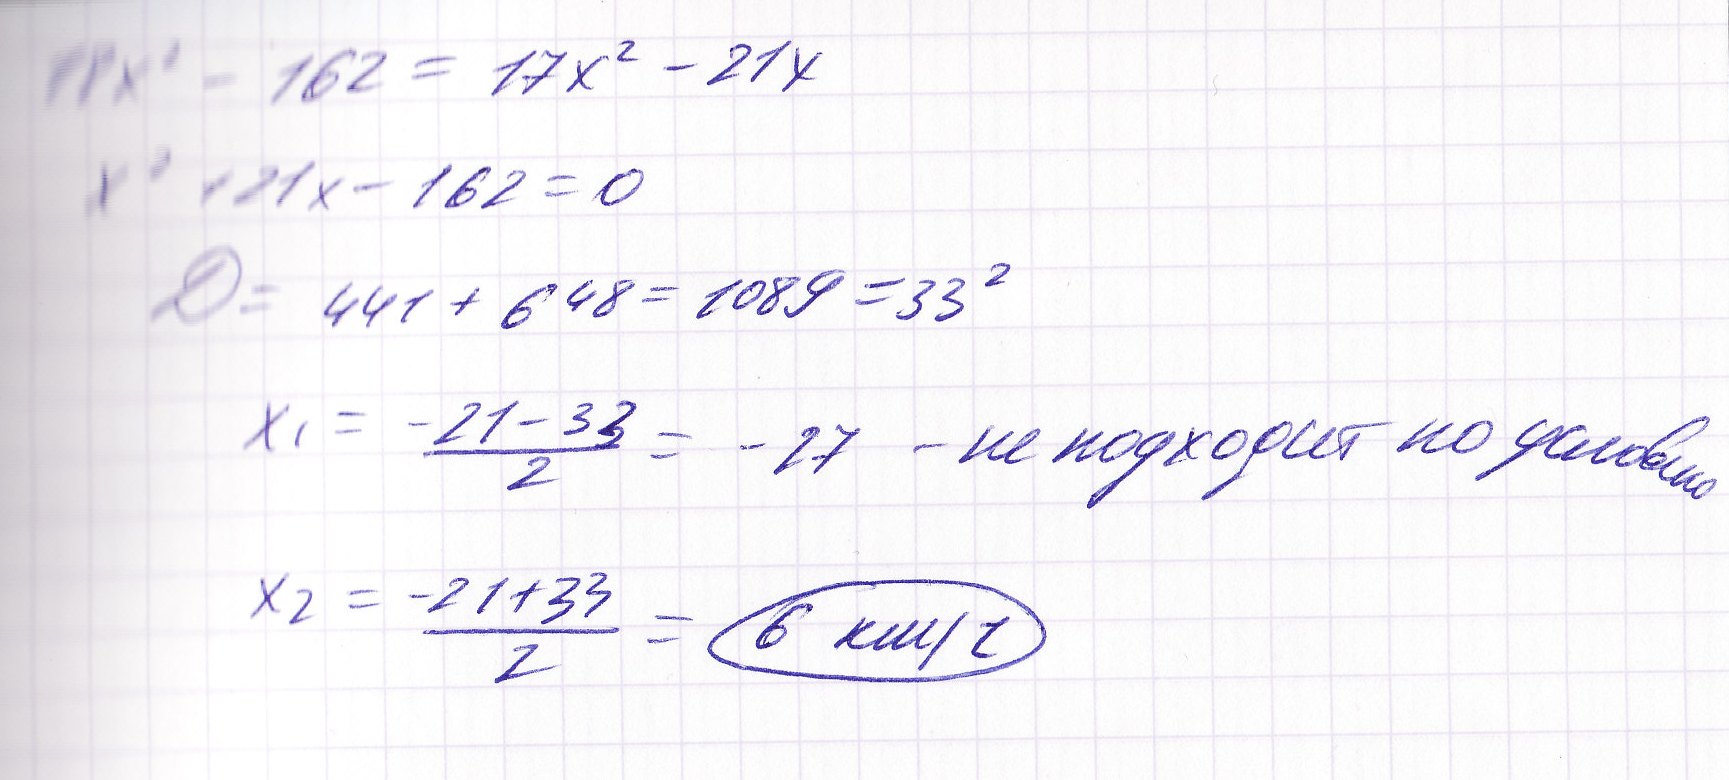 18x² - 162 = 17x² - 21x
x² + 21x - 162 = 0
D = 441 + 648 = 1089 = 33²
x₁ = (-21 - 33)/2 = -27 - не подходит по условию
x₂ = (-21 + 33)/2 = 6 км/ч